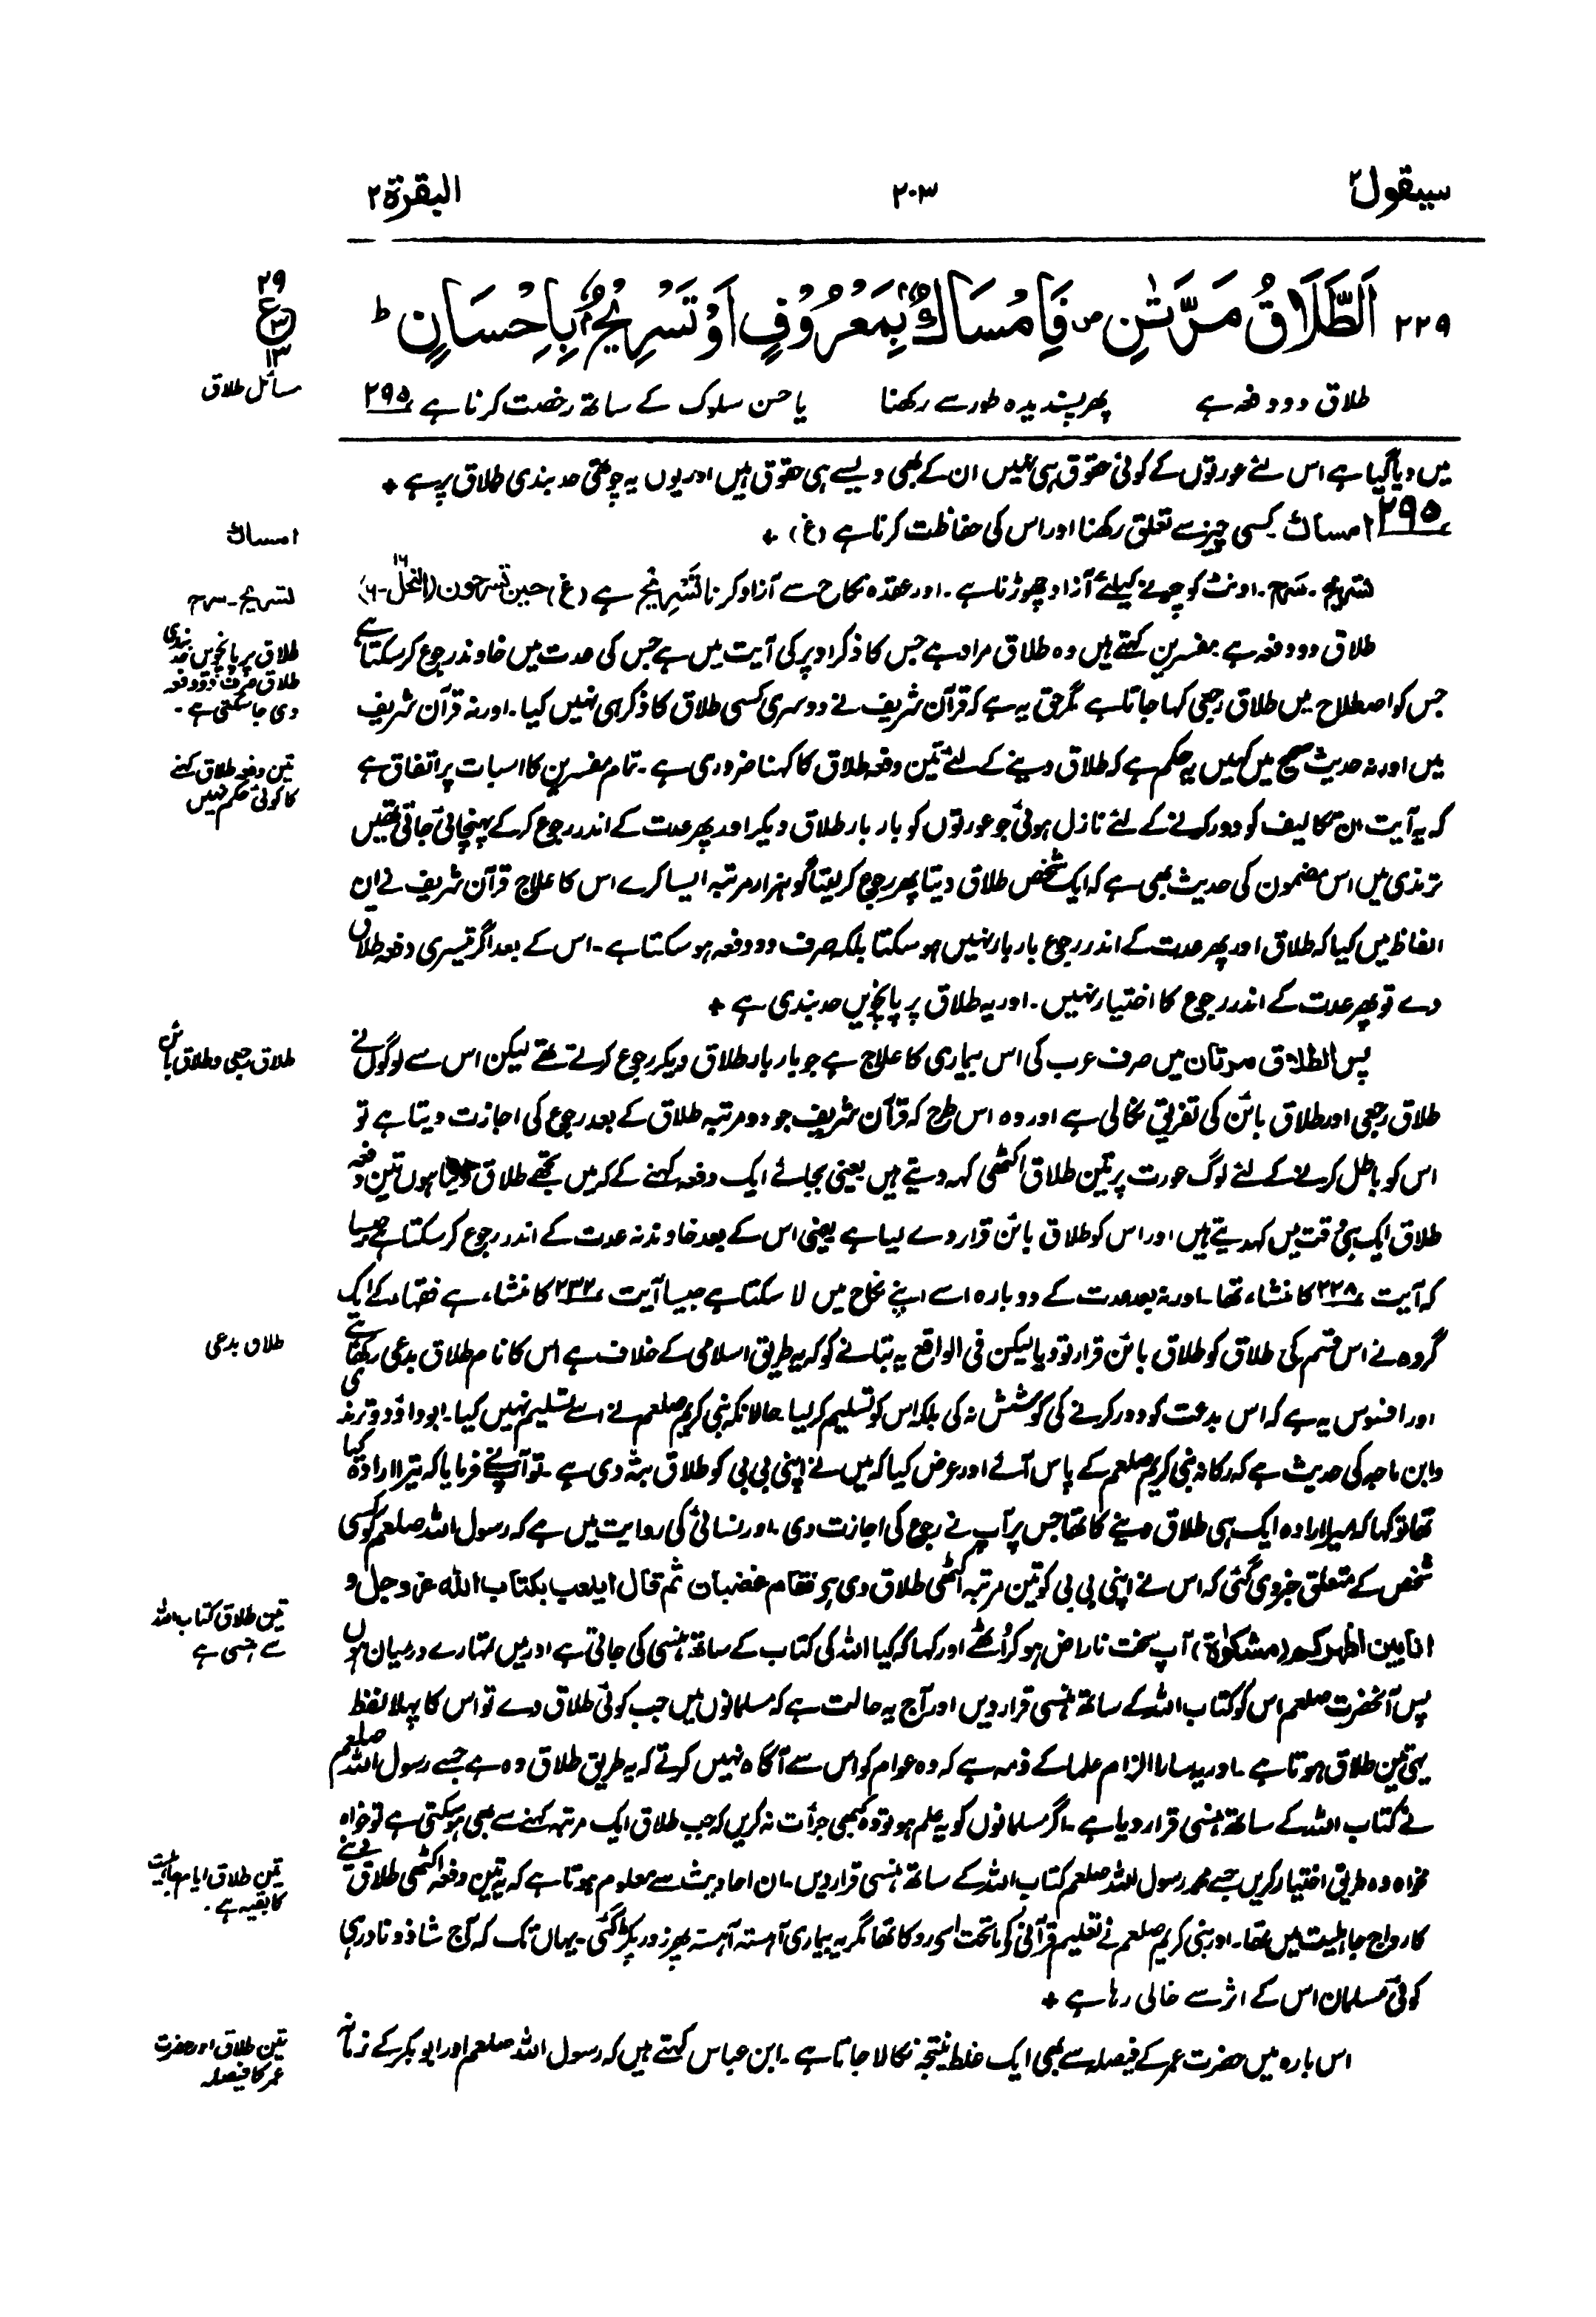 سیقول ۲
۲۰۳
البقرة ۲
۲۲۹ اَلطَّلَاقُ مَرَّتٰنِ ص فَاِمْسَاكٌۢ بِمَعْرُوْفٍ اَوْ تَسْرِيْحٌۢ بِاِحْسَانٍ ط
۲۹
ع
۳
۱۳
مسائل طلاق
طلاق دو دفعہ ہے پھر پسندیدہ طور سے رکھنا یا حسن سلوک کے ساتھ رخصت کرنا ہے ۲۹۵
میں دیا گیا ہے اس لئے عورتوں کے کوئی حقوق ہی نہیں ان کے بھی ویسے ہی حقوق ہیں اور یوں یہ چوتھی حد بندی طلاق پر ہے +
۲۹۵ امساك کسی چیز سے تعلق رکھنا اور اس کی حفاظت کرنا ہے (غ) +
امساك
تسریح۔ سَرح۔ اونٹ کو چرنے کیلئے آزاد چھوڑنا ہے۔ اور عقدہ نکاح سے آزاد کرنا تَسْرِیْح ہے (غ) حین تسرحون (النحل ۱۶-۶)
تسریح۔ سرح
طلاق دو دفعہ ہے مفسرین کہتے ہیں وہ طلاق مراد ہے جس کا ذکر اوپر کی آیت میں ہے جس کی عدت میں خاوند رجوع کر سکتا ہے
طلاق پر پانچویں حد بندی
طلاق صرف دو دفعہ
دی جا سکتی ہے۔
جس کو اصطلاح میں طلاق رجعی کہا جاتا ہے مگر حق یہ ہے کہ قرآن شریف نے دوسری کسی طلاق کا ذکر ہی نہیں کیا۔ اور نہ قرآن شریف
میں اور نہ حدیث صحیح میں کہیں یہ حکم ہے کہ طلاق دینے کے لئے تین دفعہ طلاق کا کہنا ضروری ہے۔ تمام مفسرین کا اس بات پر اتفاق ہے
تین دفعہ طلاق کہنے
کا کوئی حکم نہیں
کہ یہ آیت ان تکالیف کو دور کرنے کے لئے نازل ہوئی جو عورتوں کو بار بار طلاق دیکر اور پھر عدت کے اندر رجوع کر کے پہنچائی جاتی تھیں
ترمذی میں اس مضمون کی حدیث بھی ہے کہ ایک شخص طلاق دیتا پھر رجوع کر لیتا گو ہزار مرتبہ ایسا کرے اس کا علاج قرآن شریف نے ان
الفاظ میں کیا کہ طلاق اور پھر عدت کے اندر رجوع بار بار نہیں ہو سکتا بلکہ صرف دو دفعہ ہو سکتا ہے۔ اس کے بعد اگر تیسری دفعہ طلاق
دے تو پھر عدت کے اندر رجوع کا اختیار نہیں۔ اور یہ طلاق پر پانچویں حد بندی ہے +
پس الطلاق مرتان میں صرف عرب کی اس بیماری کا علاج ہے جو بار بار طلاق دیکر رجوع کرتے تھے لیکن اس سے لوگوں نے
طلاق رجعی و طلاق بائن
طلاق رجعی اور طلاق بائن کی تفریق نکالی ہے اور وہ اس طرح کہ قرآن شریف جو دو مرتبہ طلاق کے بعد رجوع کی اجازت دیتا ہے تو
اس کو باطل کرنے کے لئے لوگ عورت پر تین طلاق اکٹھی کہہ دیتے ہیں یعنی بجائے ایک دفعہ کہنے کے کہ میں تجھے طلاق دیتا ہوں تین دفعہ
طلاق ایک ہی وقت میں کہدیتے ہیں اور اس کو طلاق بائن قرار دے لیا ہے یعنی اس کے بعد خاوند نہ عدت کے اندر رجوع کر سکتا ہے جیسا
کہ آیت ۲۲۸ کا منشاء تھا۔ اور نہ بعد عدت کے دوبارہ اسے اپنے نکاح میں لا سکتا ہے جیسا آیت ۲۳۲ کا منشاء ہے فقہاء کے ایک
گروہ نے اس قسم کی طلاق کو طلاق بائن قرار تو دیا لیکن فی الواقع یہ بتانے کو کہ یہ طریق اسلامی کے خلاف ہے اس کا نام طلاق بدعی رکھا ہے
طلاق بدعی
اور افسوس یہ ہے کہ اس بدعت کو دور کرنے کی کوشش نہ کی بلکہ اس کو تسلیم کر لیا۔ حالانکہ نبی کریم صلعم نے اسے تسلیم نہیں کیا۔ ابو داؤد و ترمذی
و ابن ماجہ کی حدیث ہے کہ رکانہ نبی کریم صلعم کے پاس آئے اور عرض کیا کہ میں نے اپنی بی بی کو طلاق بتہ دی ہے۔ تو آپ نے فرمایا کہ تیرا ارادہ کیا
تھا تو کہا کہ میرا ارادہ ایک ہی طلاق دینے کا تھا جس پر آپ نے رجوع کی اجازت دی۔ اور نسائی کی روایت میں ہے کہ رسول اللہ صلعم کو کسی
شخص کے متعلق خبر دی گئی کہ اس نے اپنی بی بی کو تین مرتبہ اکٹھی طلاق دی ہے فقام غضبان ثم قال ایلعب بکتاب اللہ عز وجل و
انا بین اظہرکم (مشکوٰۃ) آپ سخت ناراض ہو کر اُٹھے اور کہا کہ کیا اللہ کی کتاب کے ساتھ ہنسی کی جاتی ہے اور میں تمہارے درمیان ہوں
تین طلاق کتاب اللہ
سے ہنسی ہے
پس آنحضرت صلعم اس کو کتاب اللہ کے ساتھ ہنسی قرار دیں اور آج یہ حالت ہے کہ مسلمانوں میں جب کوئی طلاق دے تو اس کا پہلا لفظ
یہی تین طلاق ہوتا ہے۔ اور یہ سارا الزام علما کے ذمہ ہے کہ وہ عوام کو اس سے آگاہ نہیں کرتے کہ یہ طریق طلاق وہ ہے جسے رسول اللہ صلعم
نے کتاب اللہ کے ساتھ ہنسی قرار دیا ہے۔ اگر مسلمانوں کو یہ علم ہو تو وہ کبھی جرأت نہ کریں کہ جب طلاق ایک مرتبہ کہنے سے بھی ہو سکتی ہے تو خواہ
مخواہ وہ طریق اختیار کریں جسے محمد رسول اللہ صلعم کتاب اللہ کے ساتھ ہنسی قرار دیں۔ ان احادیث سے معلوم ہوتا ہے کہ یہ تین دفعہ اکٹھی طلاق دینے
تین طلاق ایام جاہلیت
کا بقیہ ہے۔
کا رواج جاہلیت میں تھا۔ اور نبی کریم صلعم نے تعلیم قرآنی کو ماتحت اسے روکا تھا مگر یہ بیماری آہستہ آہستہ پھر زور پکڑ گئی۔ یہاں تک کہ آج شاذ و نادر ہی
کوئی مسلمان اس کے اثر سے خالی رہا ہے +
اس بارہ میں حضرت عمر کے فیصلہ سے بھی ایک غلط نتیجہ نکالا جاتا ہے۔ ابن عباس کہتے ہیں کہ رسول اللہ صلعم اور ابوبکر کے زمانہ
تین طلاق اور حضرت
عمر کا فیصلہ